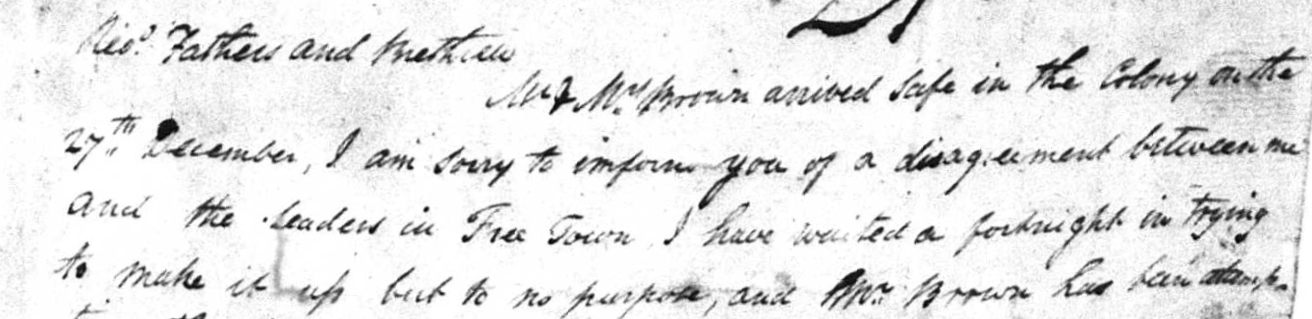 Revd. Fathers and Brethren
Mr & Mrs Brown arrived safe in the Colony on the
27th December, I am sorry to inform you of a disagreement between me
and the Leaders in Free Town, I have waited a fortnight in trying
to make it up but to no purpose, and Mr. Brown has been attemp-